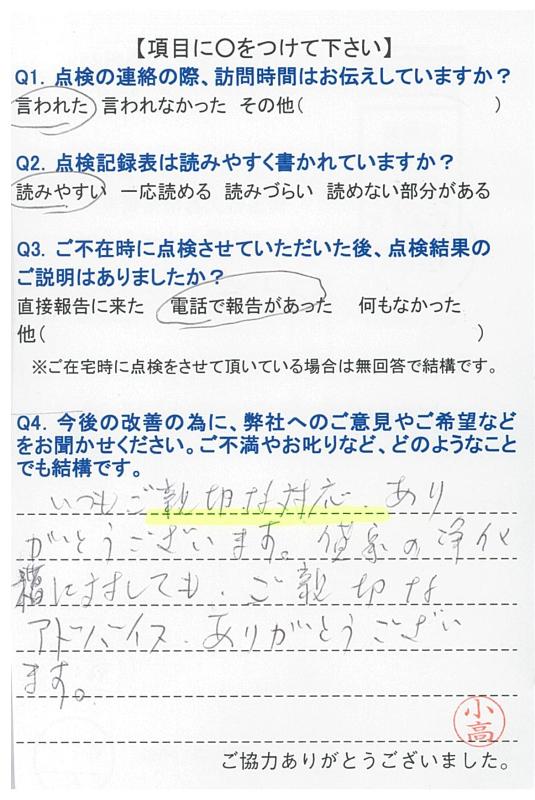 【項目に〇をつけて下さい】
Q1. 点検の連絡の際、訪問時間はお伝えしていますか？
言われた 言われなかった その他( )
Q2. 点検記録表は読みやすく書かれていますか？
読みやすい 一応読める 読みづらい 読めない部分がある
Q3. ご不在時に点検させていただいた後、点検結果の
ご説明はありましたか？
直接報告に来た 電話で報告があった 何もなかった
他( )
※ご在宅時に点検をさせて頂いている場合は無回答で結構です。
Q4. 今後の改善の為に、弊社へのご意見やご希望など
をお聞かせください。ご不満やお叱りなど、どのようなこと
でも結構です。
いつもご親切な対応、あり
がとうございます。借家の浄化
槽にましても、ご親切な
アドバイス、ありがとうござい
ます。
小高
ご協力ありがとうございました。